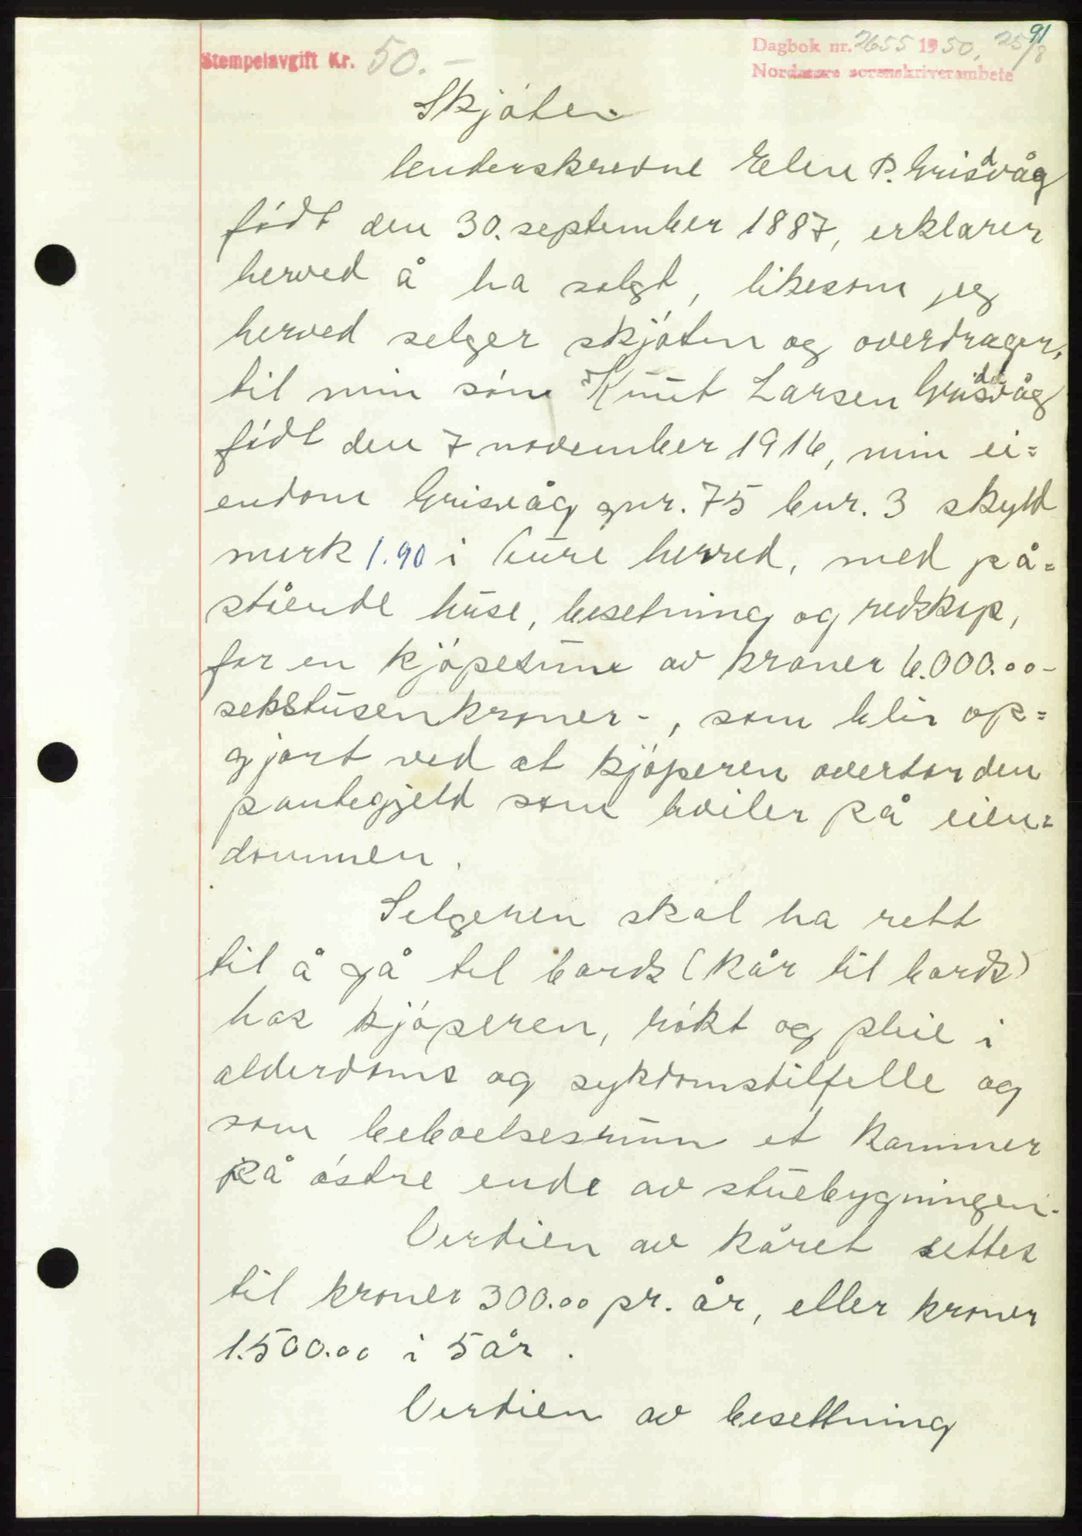 91
Stempelavgift Kr. 50.-
Dagbok nr. 2655 1950, 25/8
Nordmøre sorenskriverembete
Skjøte
Underskrevne Elen P. Grisvåg
født den 30. september 1887, erklærer
herved å ha solgt, likesom jeg
herved selger skjøter og overdrager,
til min sønn Knut Larsen Grisvåg
født den 7 november 1916, min ei=
endom Grisvåg gnr. 75 bnr. 3 skyld
mark 1.90 i Tustna herred, med på=
stående huse, besetning og redskap,
for en kjøpesum av kroner 6.000.00-
sekstusenkroner-, som blir op=
gjort ved at kjøperen overtar den
pantegjeld som hviler på eien=
dommen.
Selgeren skal ha rett
til å gå til bords (kår til bords)
hos kjøperen, røkt og pleie i
alderdoms og sykdomstilfelle og
som beboelsesrum et kammer
på østre ende av stuebygningen.
Verdien av kåret settes
til kroner 300.00 pr. år, eller kroner
1.500.00 i 5 år.
Verdien av besetning